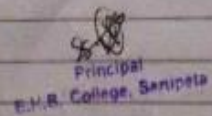 Principal
E.H.R. College, Sanipeta